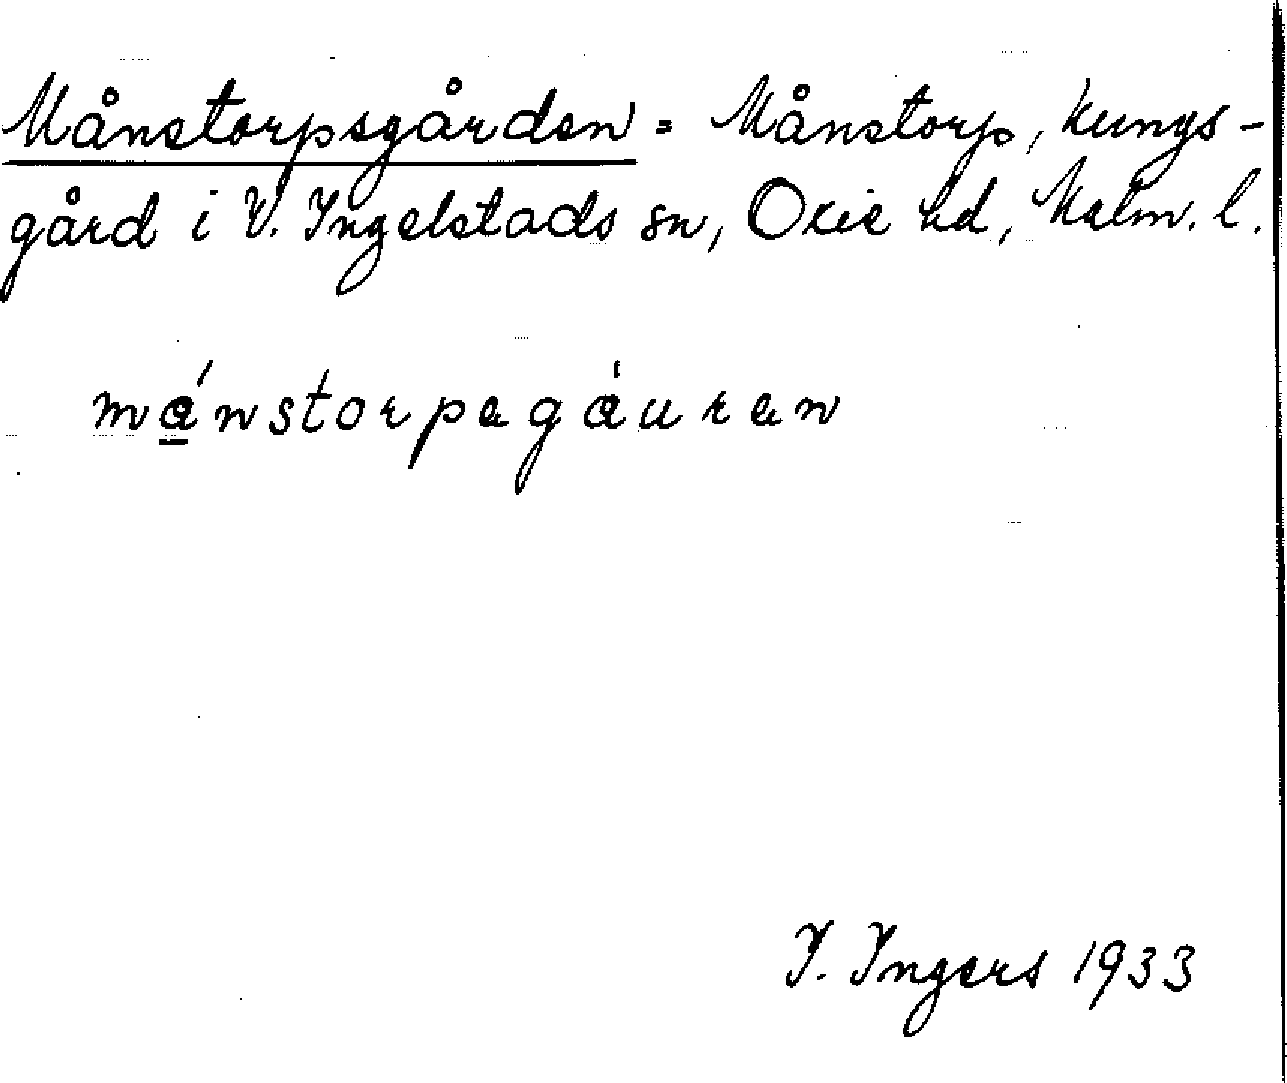 Månstorpsgården = Månstorp, kungs-
gård i V. Ingelstads sn, Oxie hd, Malm. l.
mánstorpagáuran
I. Ingers 1933